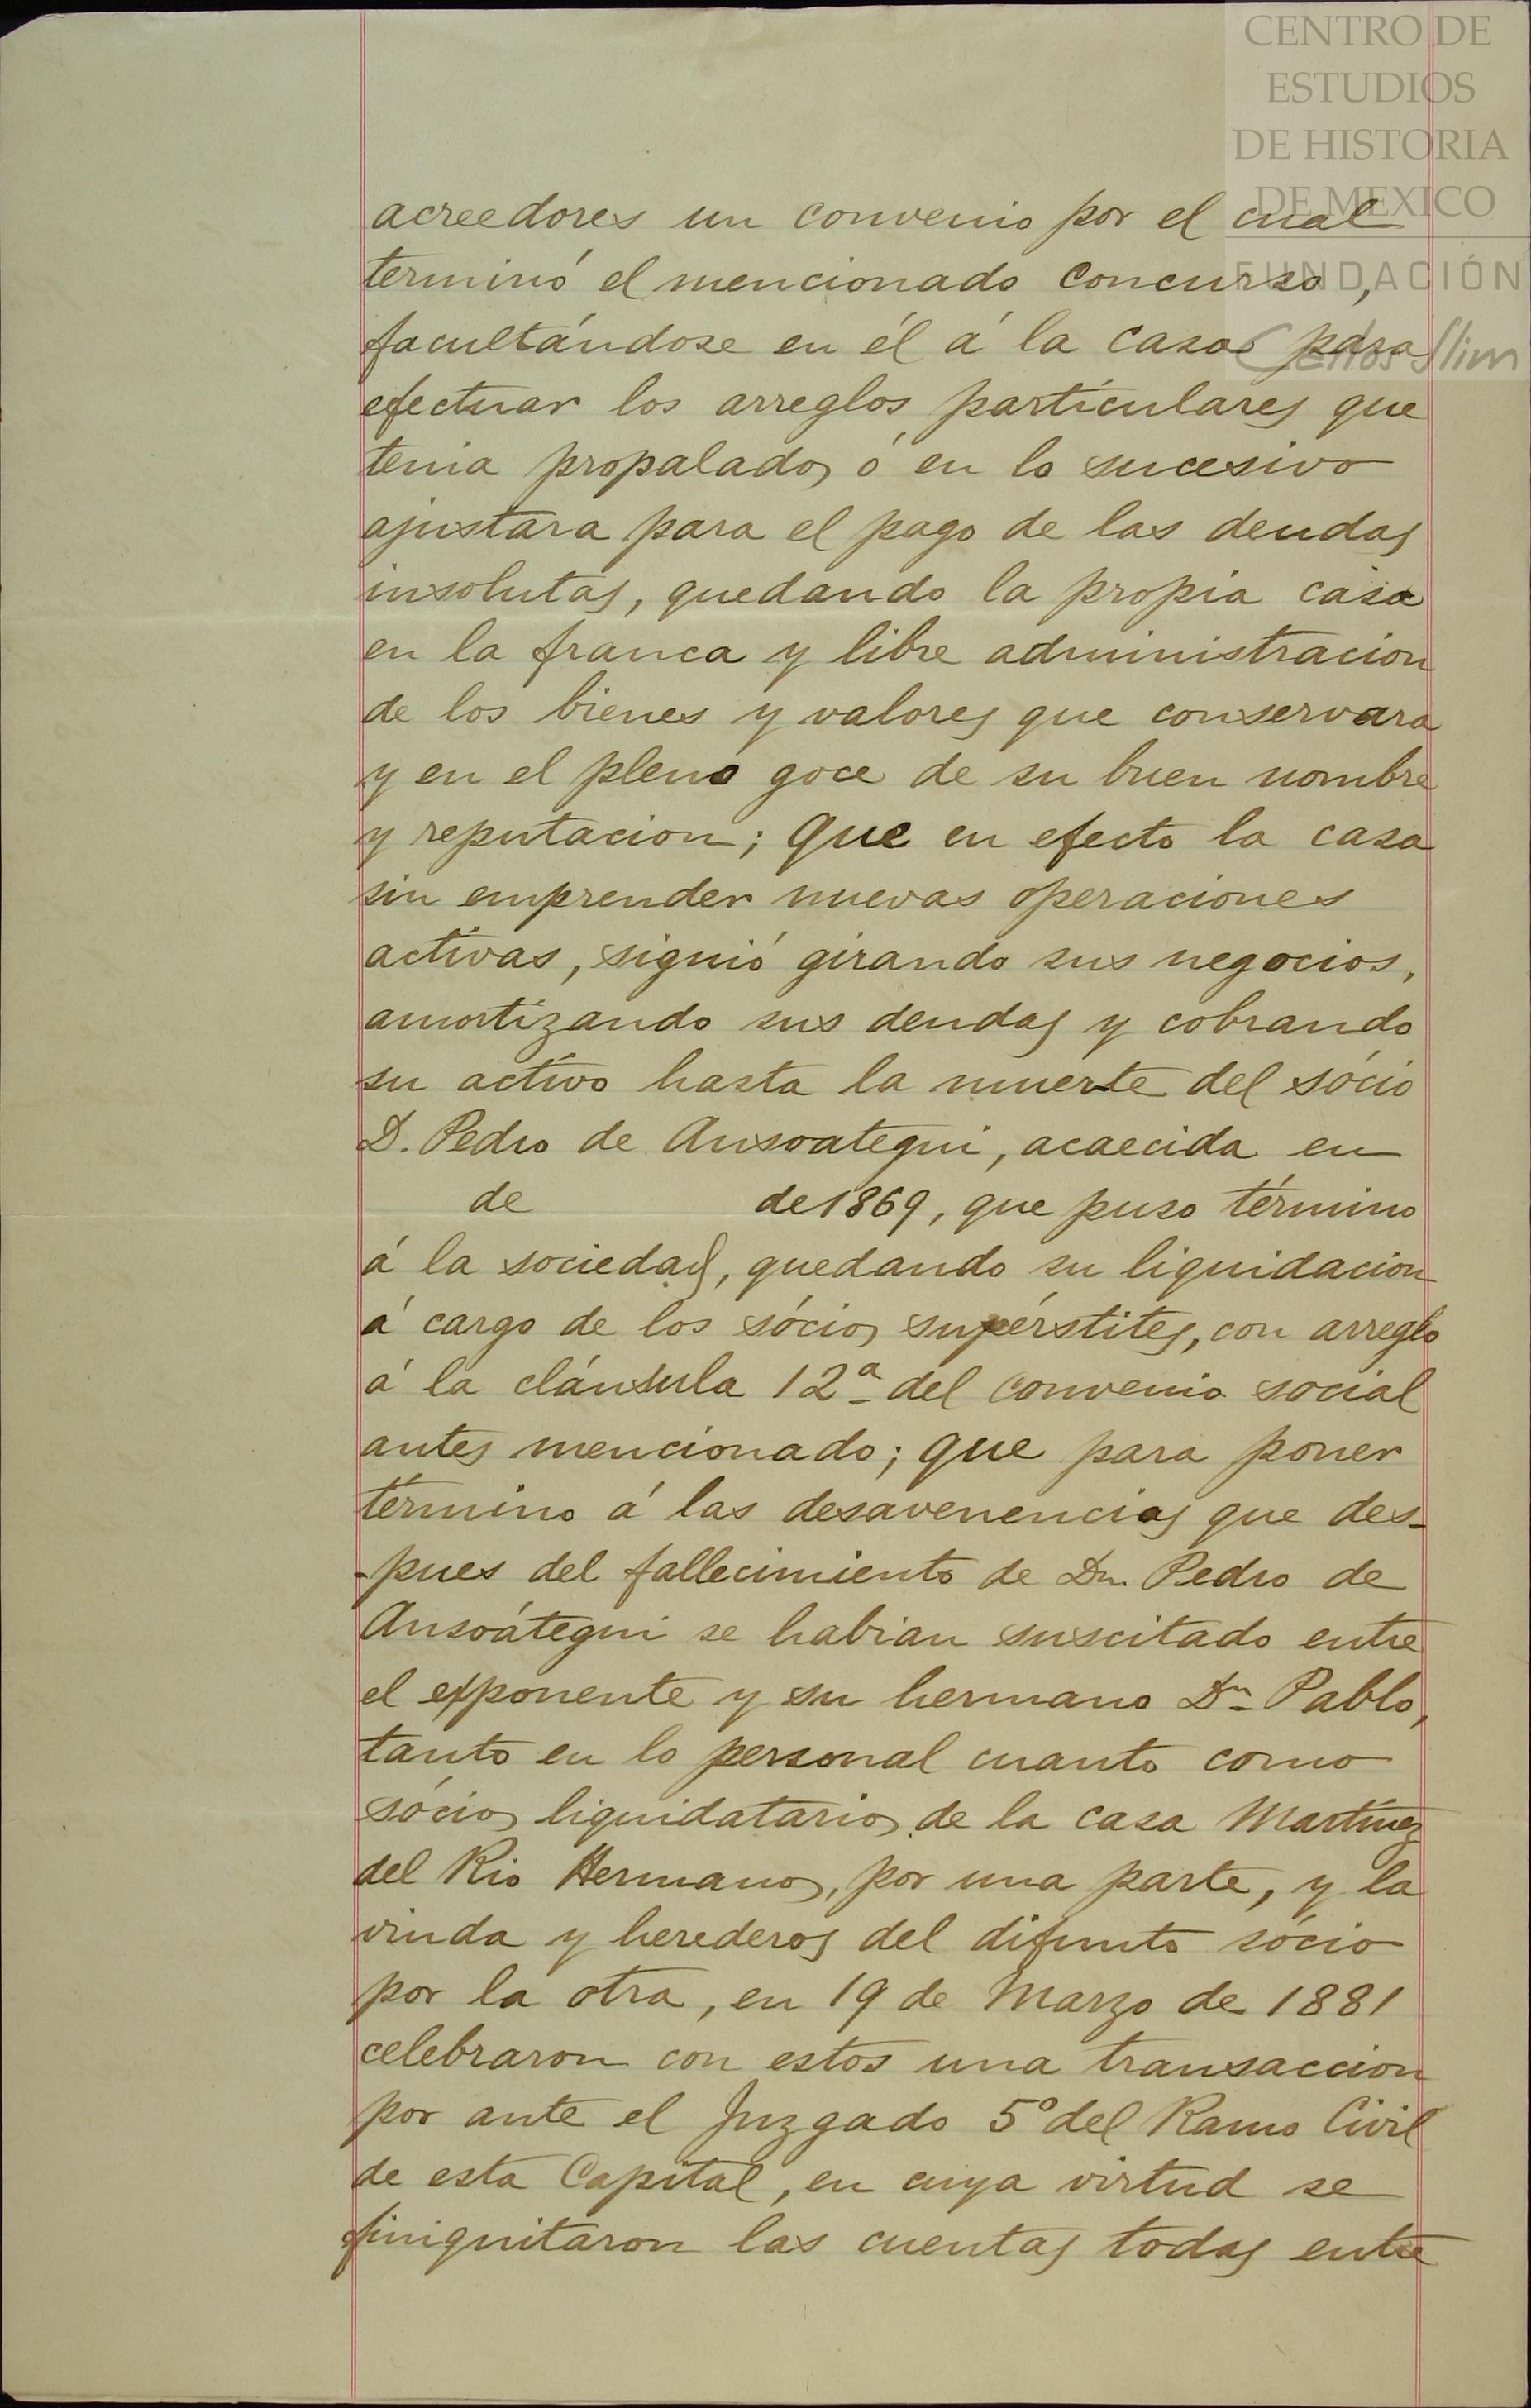 CENTRO DE
ESTUDIOS
DE HISTORIA
DE MEXICO
FUNDACIÓN
Carlos Slim
acreedores un convenio por el cual
terminó el mencionado concurso,
facultándose en él á la casa para
efectuar los arreglos particulares que
tenia propalados ó en lo sucesivo
ajustara para el pago de las deudas
insolutas, quedando la propia casa
en la franca y libre administracion
de los bienes y valores que conservara
y en el pleno goce de su buen nombre
y reputacion; que en efecto la casa
sin emprender nuevas operaciones
activas, siguió girando sus negocios,
amortizando sus deudas y cobrando
su activo hasta la muerte del sócio
D. Pedro de Ansoategui, acaecida en
de de 1869, que puso término
á la sociedad, quedando su liquidacion
á cargo de los sócios supérstites, con arreglo
á la cláusula 12ª del convenio social
antes mencionado; que para poner
término á las desavenencias que des-
-pues del fallecimiento de Dn. Pedro de
Ansoátegui se habian suscitado entre
el exponente y su hermano Dn. Pablo,
tanto en lo personal cuanto como
sócios liquidatarios de la casa Martínez
del Rio Hermanos, por una parte, y la
viuda y herederos del difunto sócio
por la otra, en 19 de Marzo de 1881
celebraron con estos una transaccion
por ante el Juzgado 5º del Ramo Civil
de esta Capital, en cuya virtud se
finiquitaron las cuentas todas entre